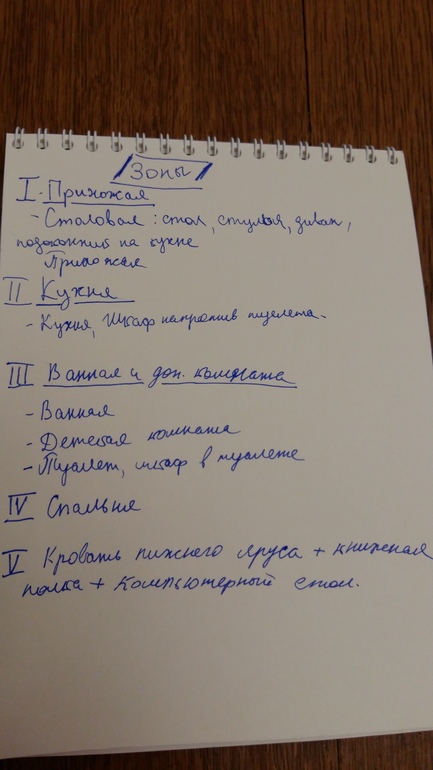 Зоны
I. Прихожая
- Столовая: стол, стулья, диван,
подоконник на кухне
Прихожая
II Кухня
- Кухня, Шкаф напротив туалета.
III Ванная и доп. комната
- Ванная
- Детская комната
- Туалет, шкаф в туалете
IV Спальня
V Кровать нижнего яруса + книжная
полка + Компьютерный стол.